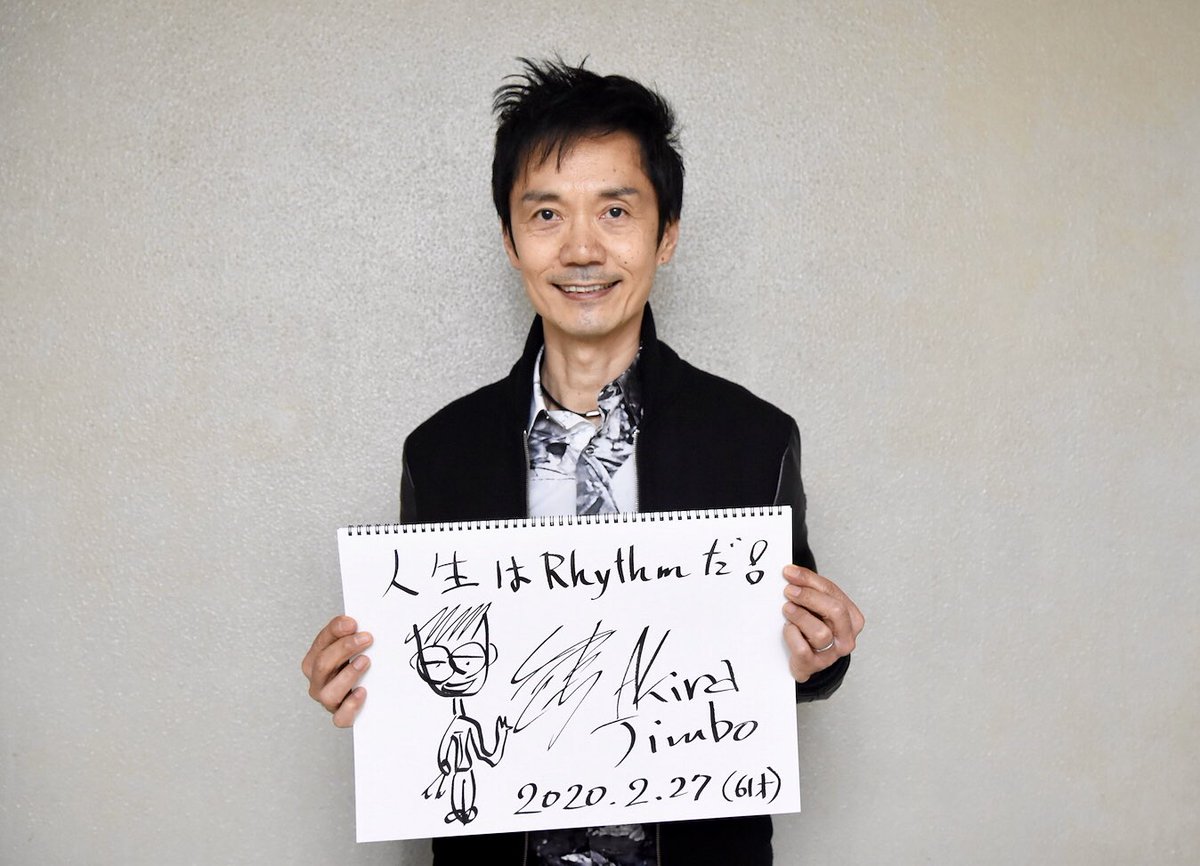 人生はRhythmだ!
Akira
Jimbo
2020.2.27(61才)